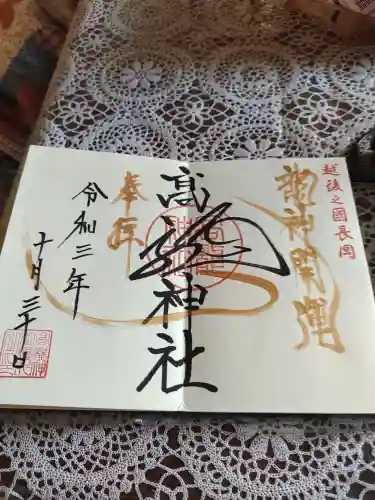 越後之國長岡
龍神開運
髙龍神社
奉拝
令和三年
十月三十日